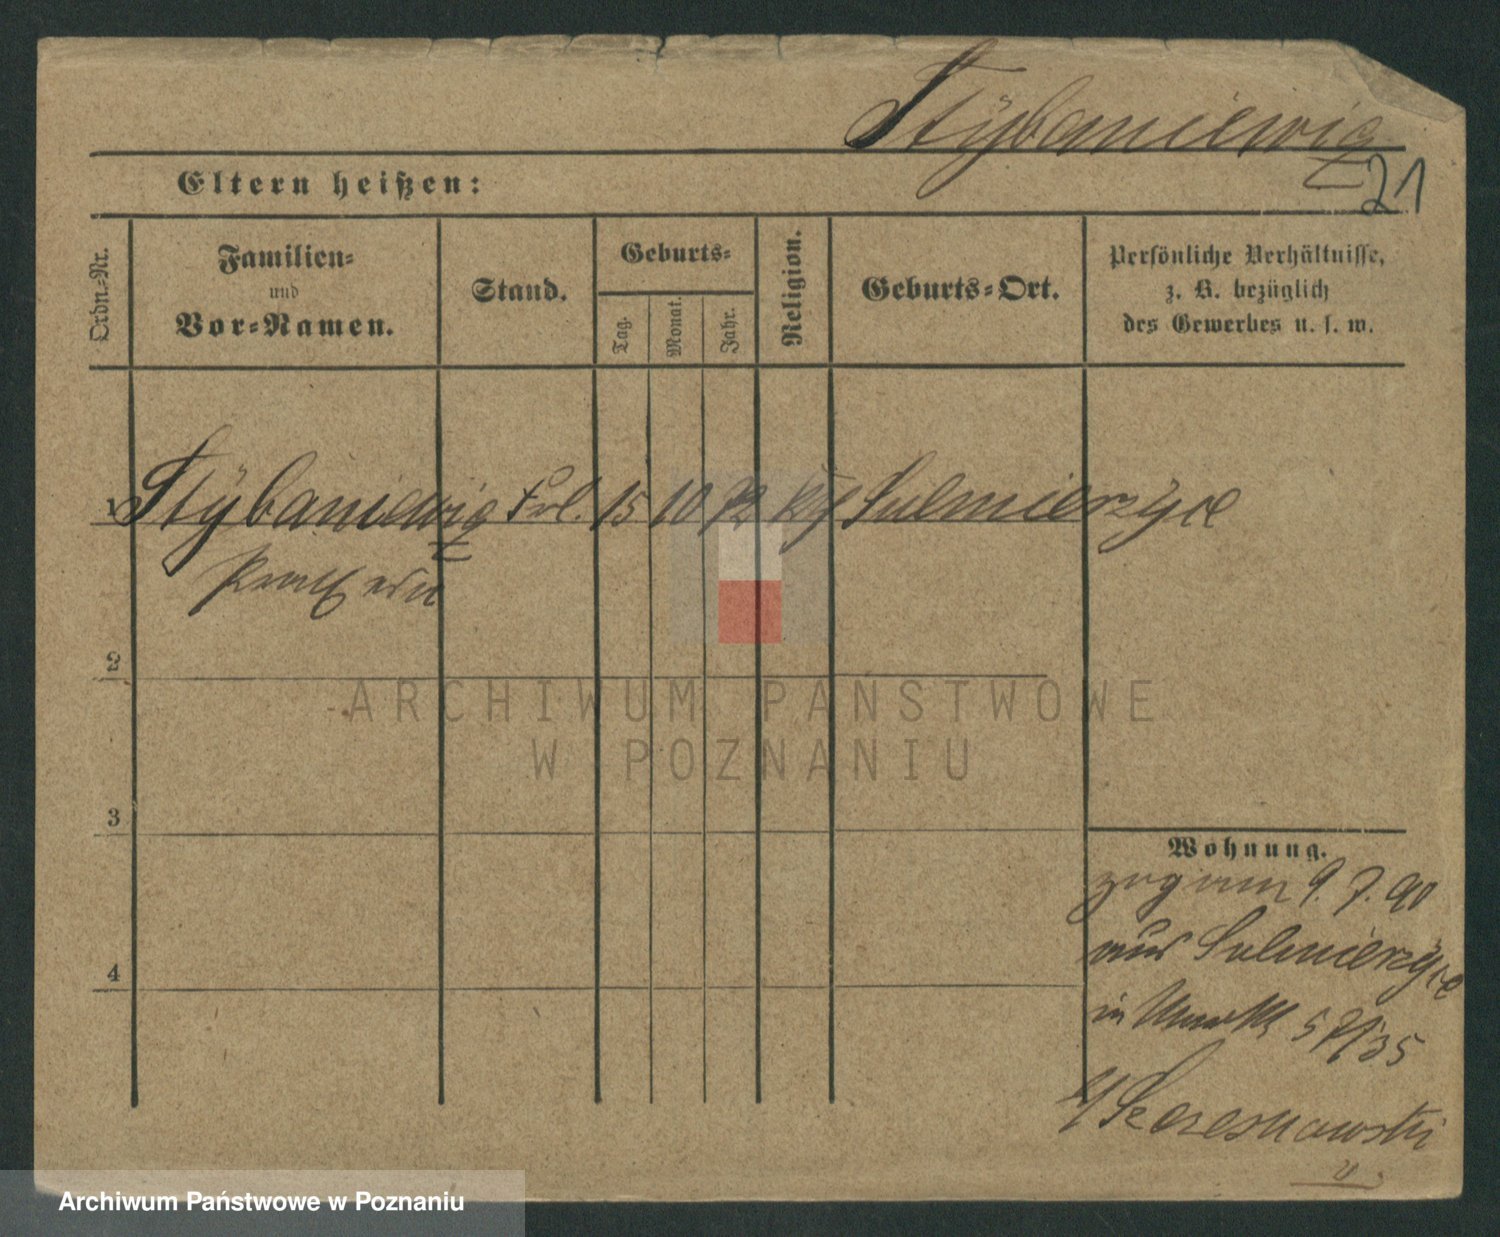 Stybaniewicz
21
Eltern heißen:
Ordn.-Nr.
Familien-
und
Vor-Namen.
Stand.
Geburts-
Tag.
Monat.
Jahr.
Religion.
Geburts-Ort.
Persönliche Verhältnisse,
z. B. bezüglich
des Gewerbes u. s. w.
1 Stybaniewicz Frl. 15 10 72 kth Sulmierzyce
2
3
4
Wohnung.
zug am 9. 7. 90
aus Sulmierzyce
in 57/35
ARCHIWUM PAŃSTWOWE
W POZNANIU
Archiwum Państwowe w Poznaniu